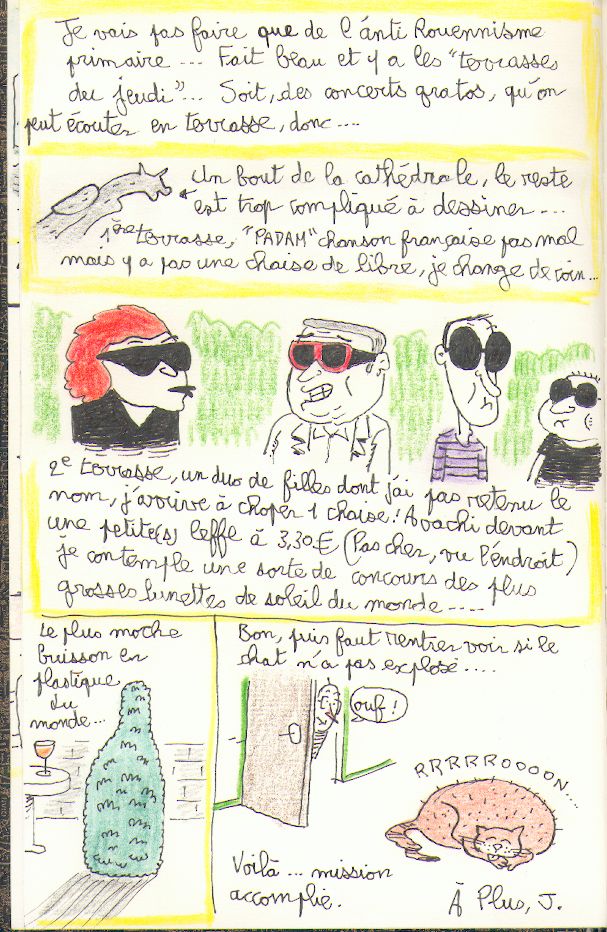 Je vais pas faire que de l'anti Rouennisme
primaire ... Fait beau et y a les "terrasses
du jeudi"... Soit, des concerts gratos, qu'on
peut écouter en terrasse, donc....
Un bout de la cathédrale, le reste
est trop compliqué à dessiner...
1ère terrasse, "PADAM" chanson française pas mal
mais y a pas une chaise de libre, je change de coin...
2e terrasse, un duo de filles dont j'ai pas retenu le
nom, j'arrive à choper 1 chaise! Avachi devant
une petite(s) leffe à 3,30€ (Pas cher, vu l'endroit)
je contemple une sorte de concours des plus
grosses lunettes de soleil du monde....
Le plus moche
buisson en
plastique
du
monde...
Bon, puis faut rentrer voir si le
chat n'a pas explosé....
ouf!
RRRRROOOON...
Voilà... mission
accomplie.
À Plus, J.